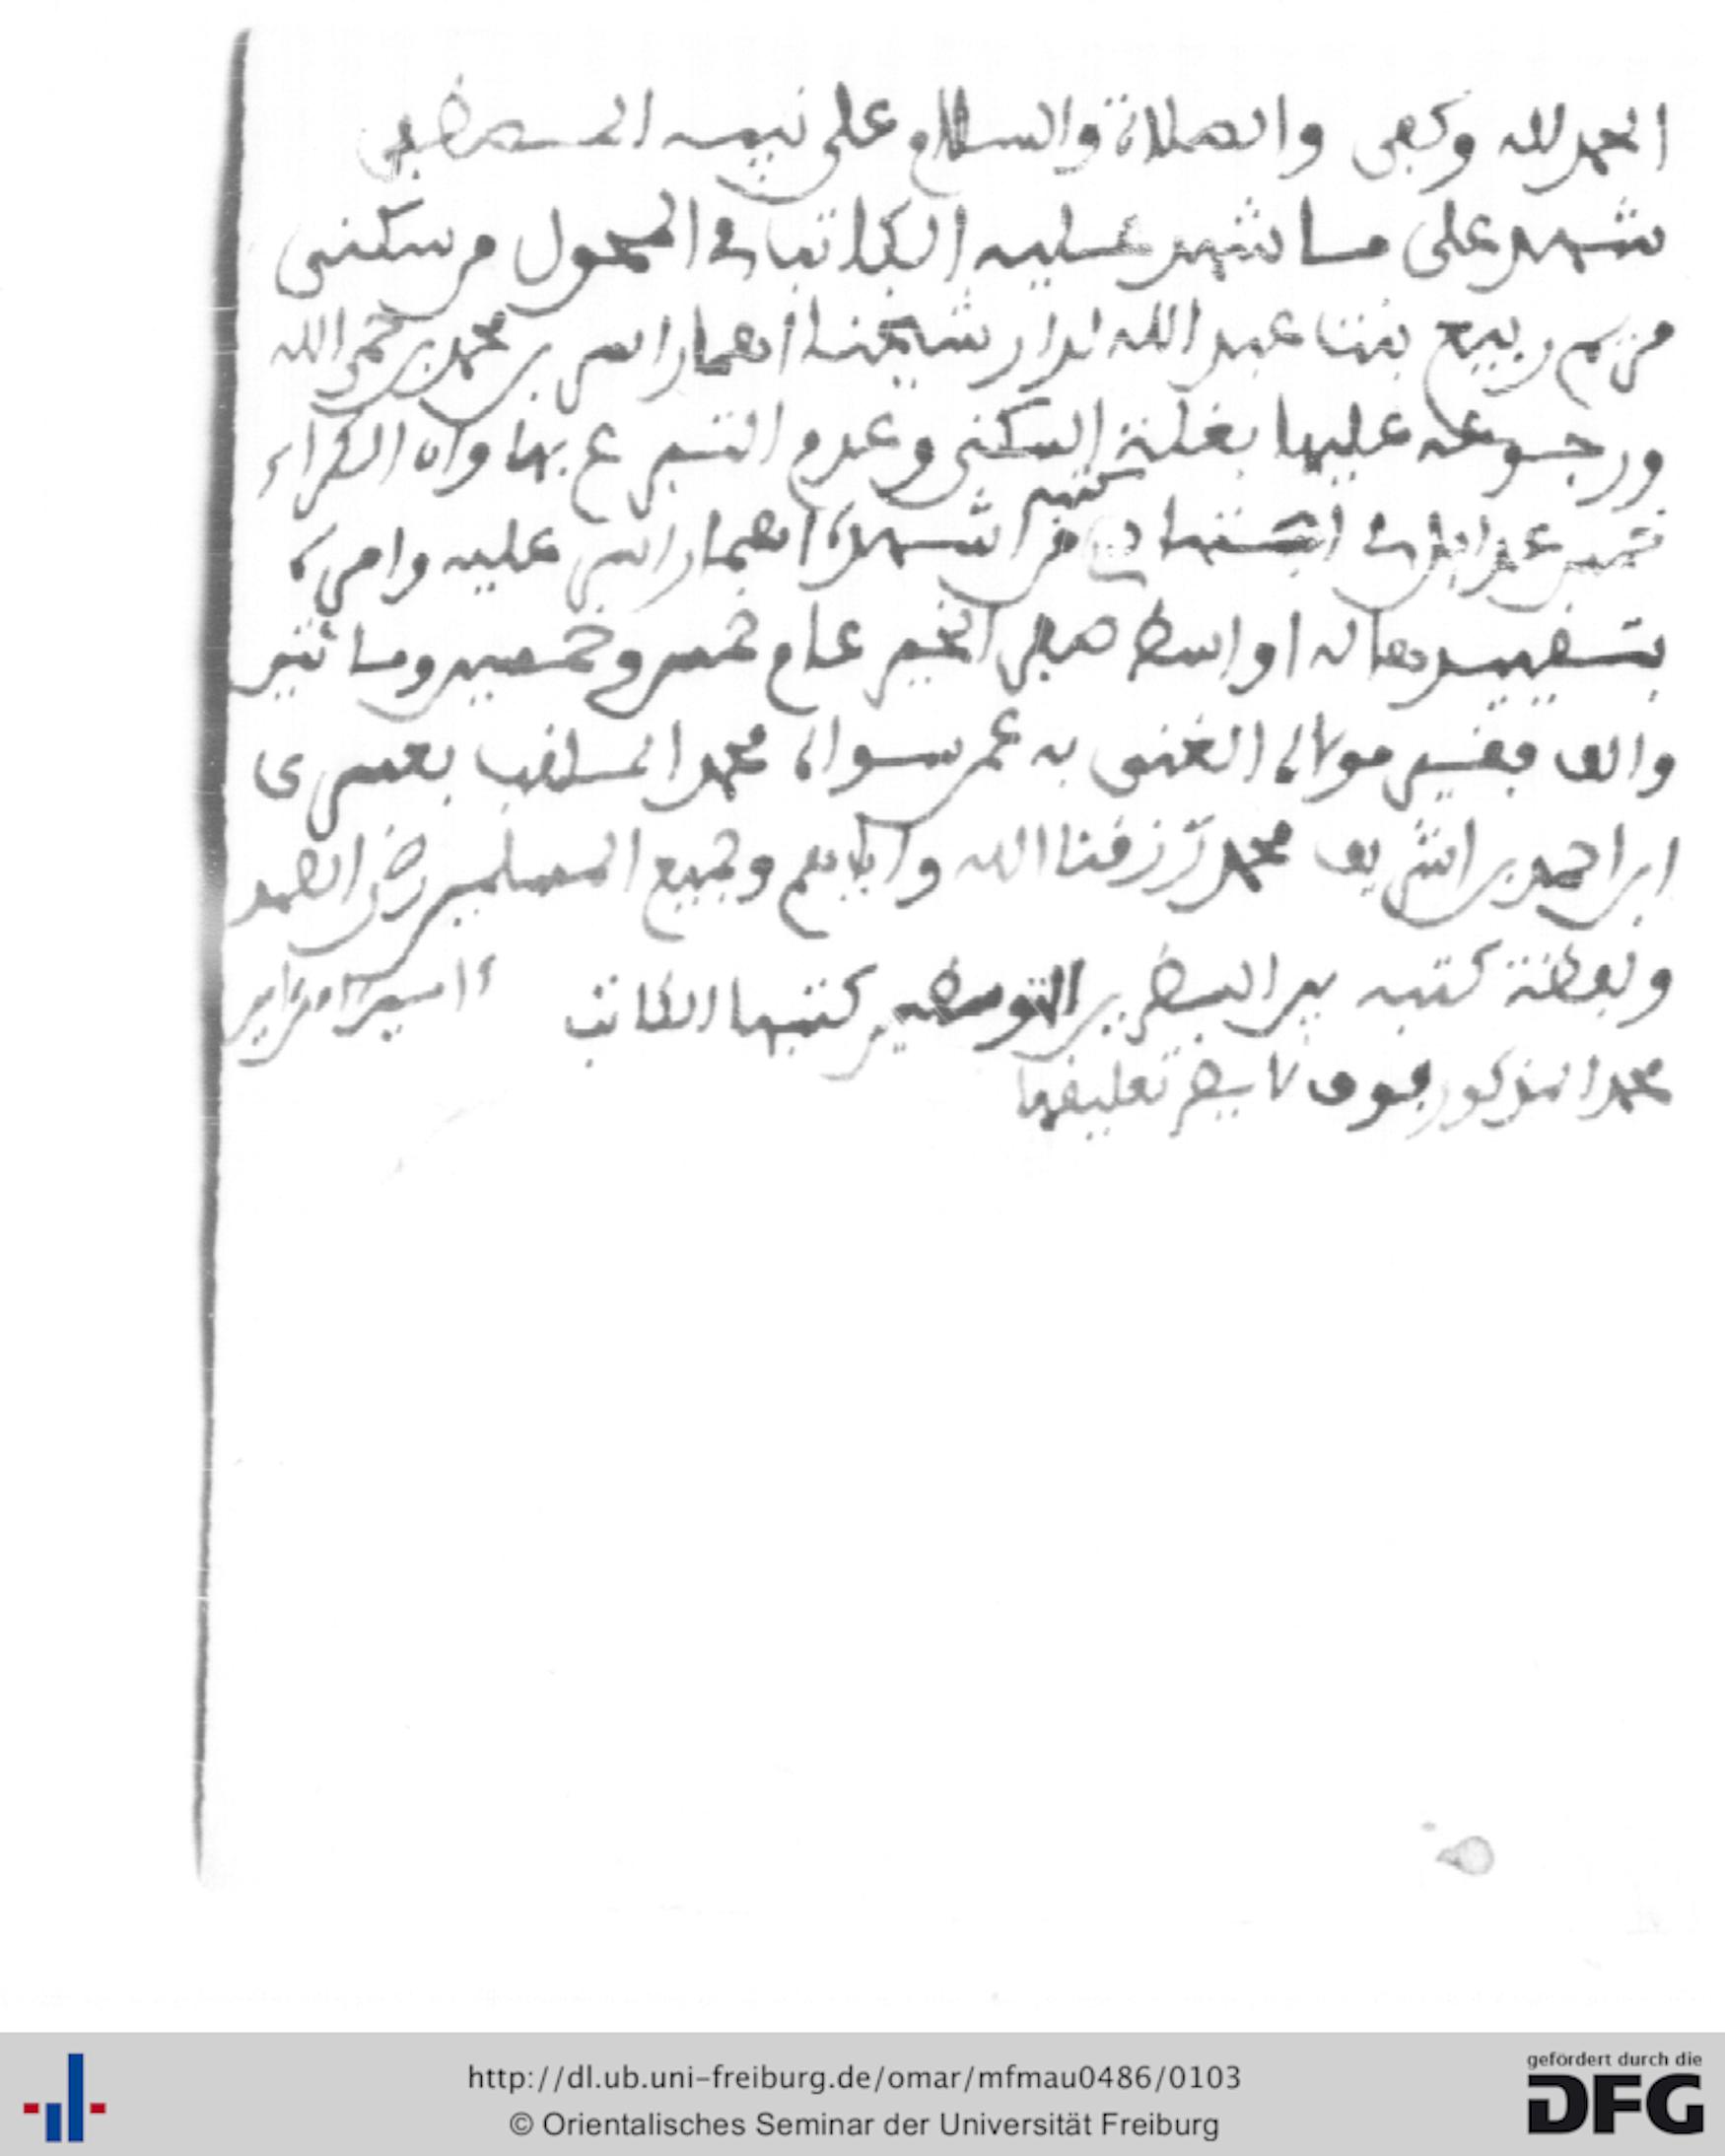 الحمد لله وكفى والصلاة والسلام على نبيه المصطفى
شهد على ما شهد عليه الكاتب في المحول من سكنى
مريم ربيع بنت عبد الله لدار شيخنا انهمار اسن بن محمد بن رحم الله
ورجوعه عليها بغلة السكنى وعدم التبرع بها وان الكراء
في من اشهده انهمار اسن عليه وامره
بتقييده له اواسط صفر الخير عام خمس وخمسين ومائتين
والف فقير مولاه الغني به عمن سواه محمد الملقب
ابن احمد بن الشريف محمد رزقنا الله واياهم وجميع المسلمين رضى الصمد
ولفظة كتبه بين السطرين المتوسطين كتبها الكاتب اامين اامين
محمد المذكور فوق لا يضر تعليقها
http://dl.ub.uni-freiburg.de/omar/mfmau0486/0103
© Orientalisches Seminar der Universität Freiburg
gefördert durch die
DFG